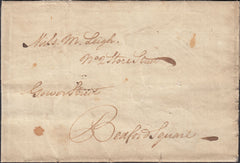 Miss M. Leigh.
No 2 Store Street
Gower Street
Beaford Square